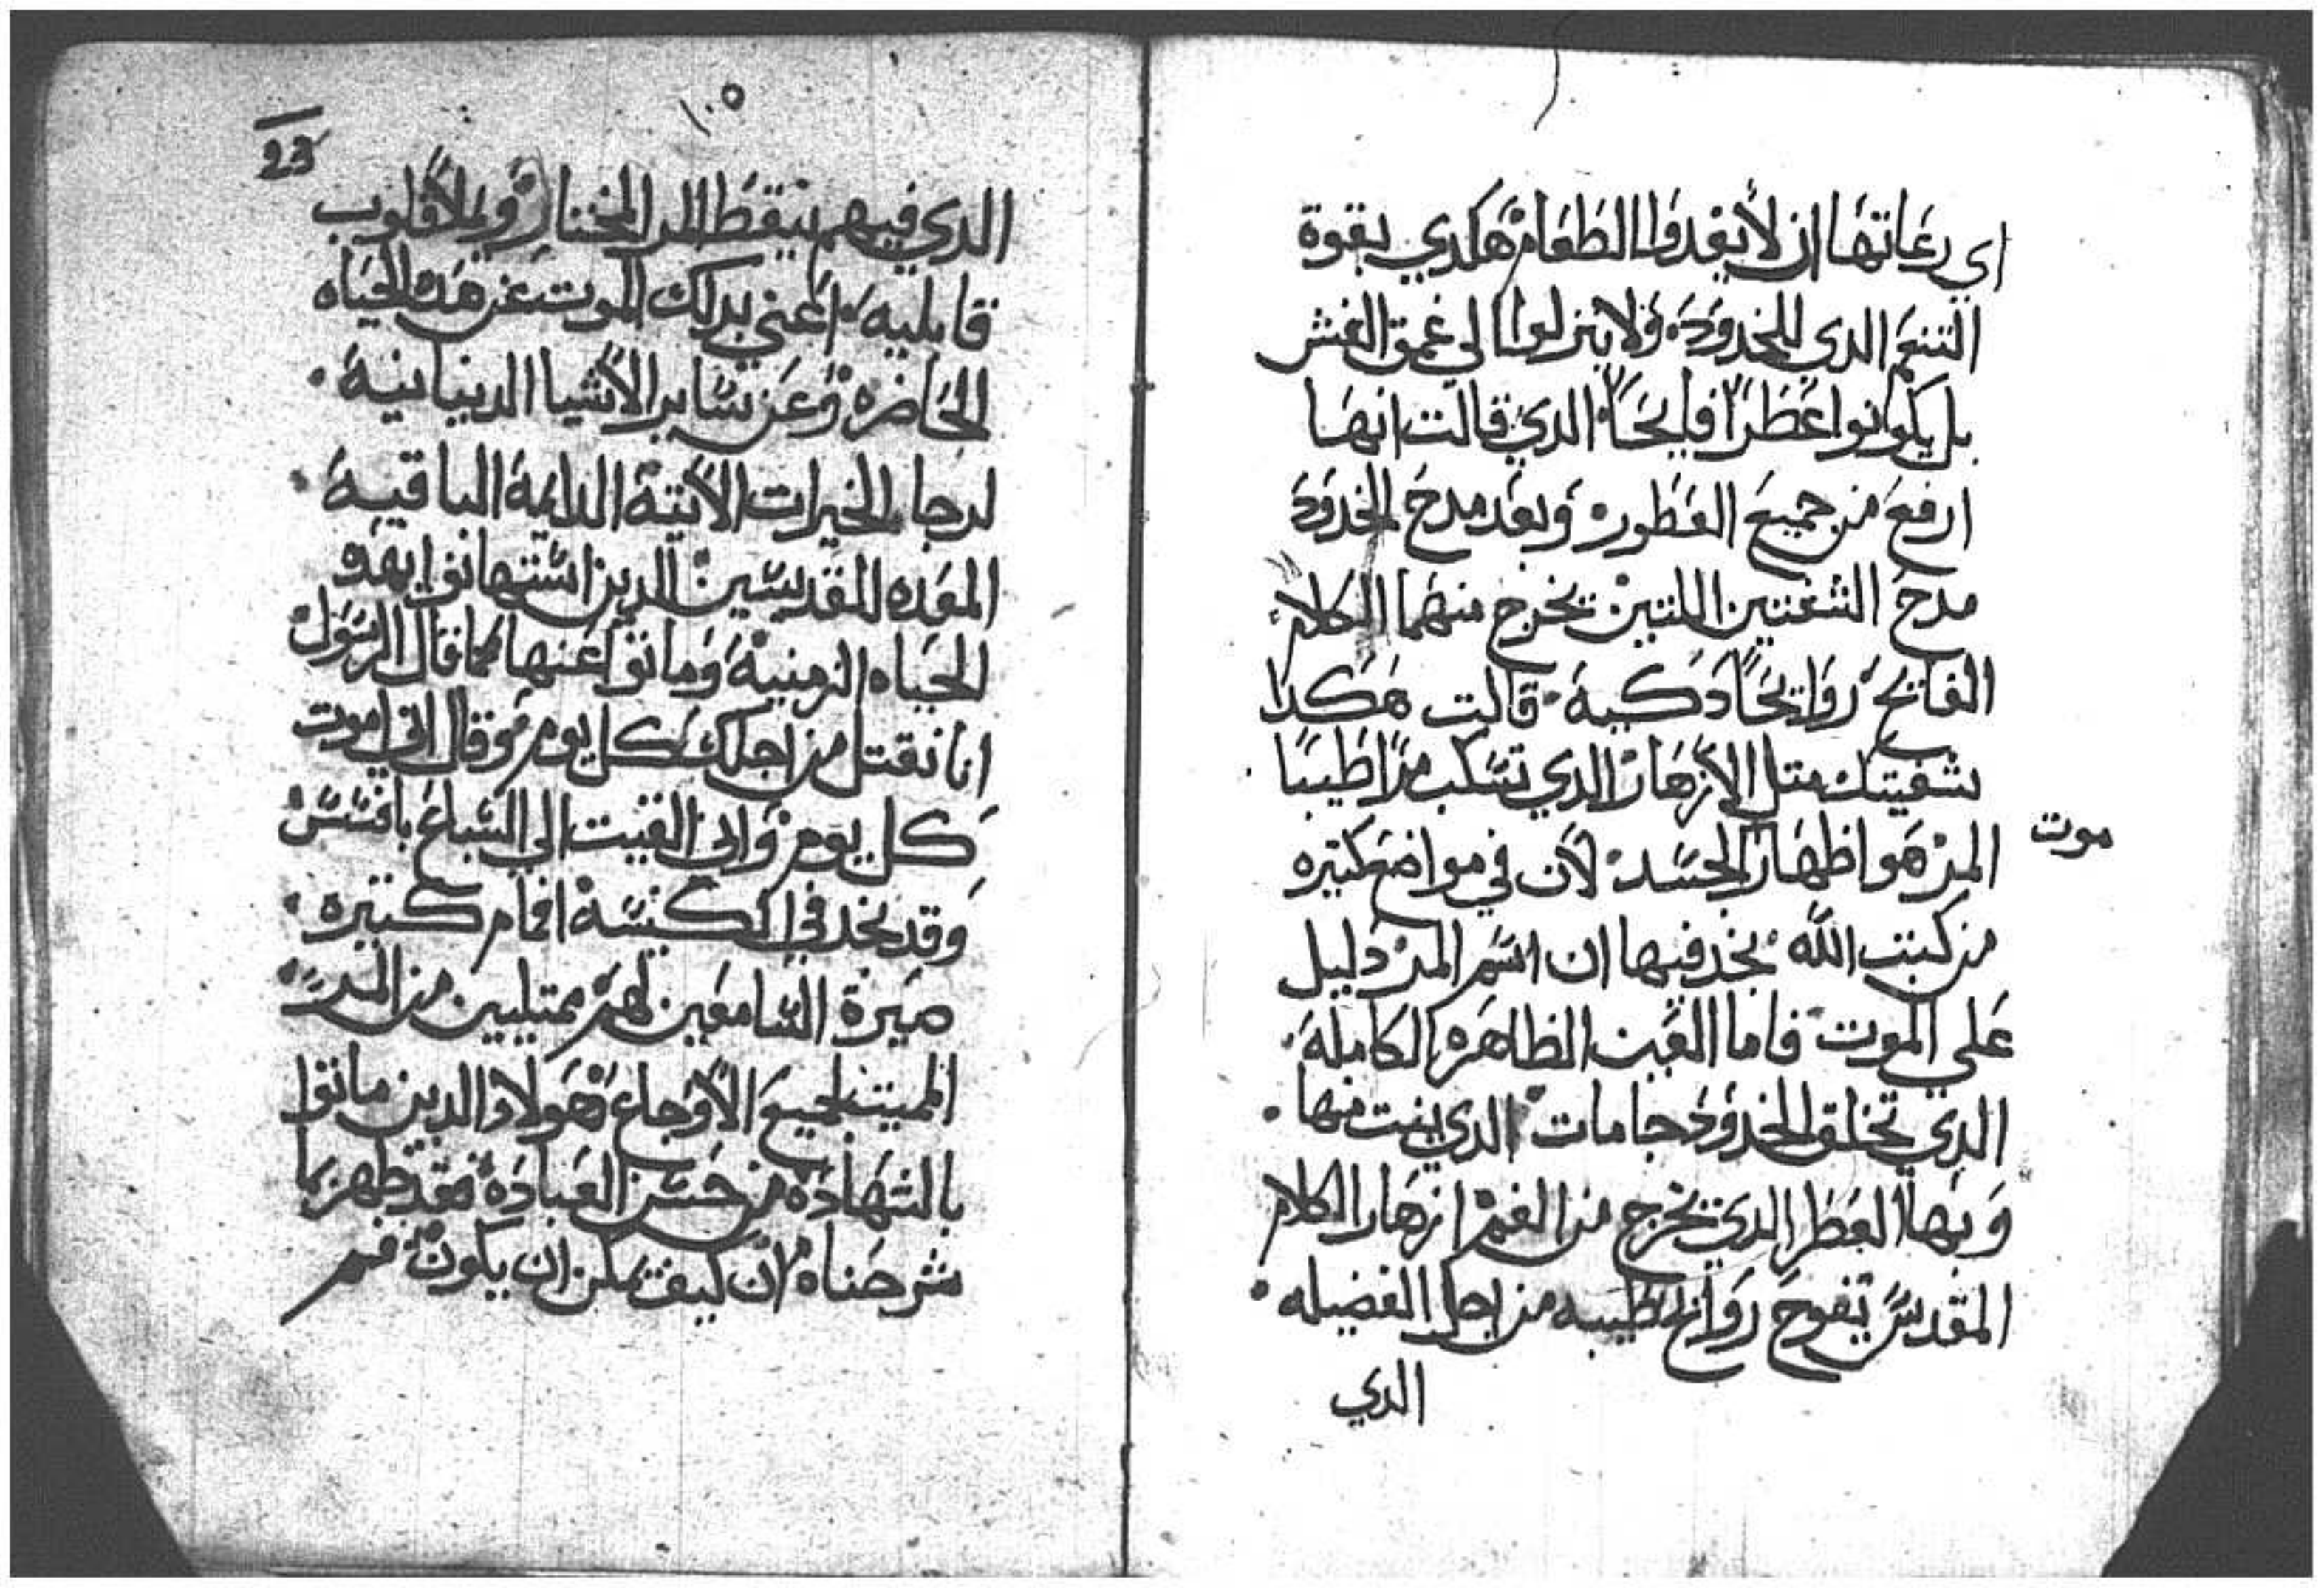 اي رعاتها ان لا يغدوا الطعام هكدي بقوة
التنعم الدي للخدود ولا ينزلوا الي عمق الغش
بل يكونوا عطرا فايحا الدي قالت انها
ارفع من جميع العطور وبعد مدح الخدود
مدح الشفتين اللتين تخرج منهما الكلام
الفايح روايحا دكية قالت هكدا
شفيتك متل الازهار الدي تسكب مرا طيبا
موت
المر هو اظهار الجسد لان في مواضع كتيره
من كتب الله نجد فيها ان اسم المر دليل
علي الموت فاما العين الظاهره الكاملة
الدي تخلق الخدود جامات الدي ينت منها
وبها العطر الدي يخرج من الفم ازهار الكلام
المقدس تفوح روايح طيبه من اجل الفضيله
الدي
١٠٥
23
الدي فيهم ينقط المر المختار ويملا قلوب
قابليه اعني بدلك الموت عن هده الحياه
الحاضره وعن ساير الاشيا الدنيانية
لرجا الخيرات الاتية الدايمة الباقية
المعده للقديسين الدين استهانوا بهده
الحياه الزمنية وماتوا عنها كما قال الرسول
انا نقتل من اجلك كل يوم وقال اني اموت
كل يوم واني القيت الي السباع بافسس
وقد نجد في الكنيسة افمام كتيره
صيرة السامعين لهم ممتليين من المر
المميت لجميع الاوجاع هولاء الدين ماتوا
بالشهادة من حسن العبادة فقد ظهر بما
شرحناه ان كيف يمكن ان يكون فم